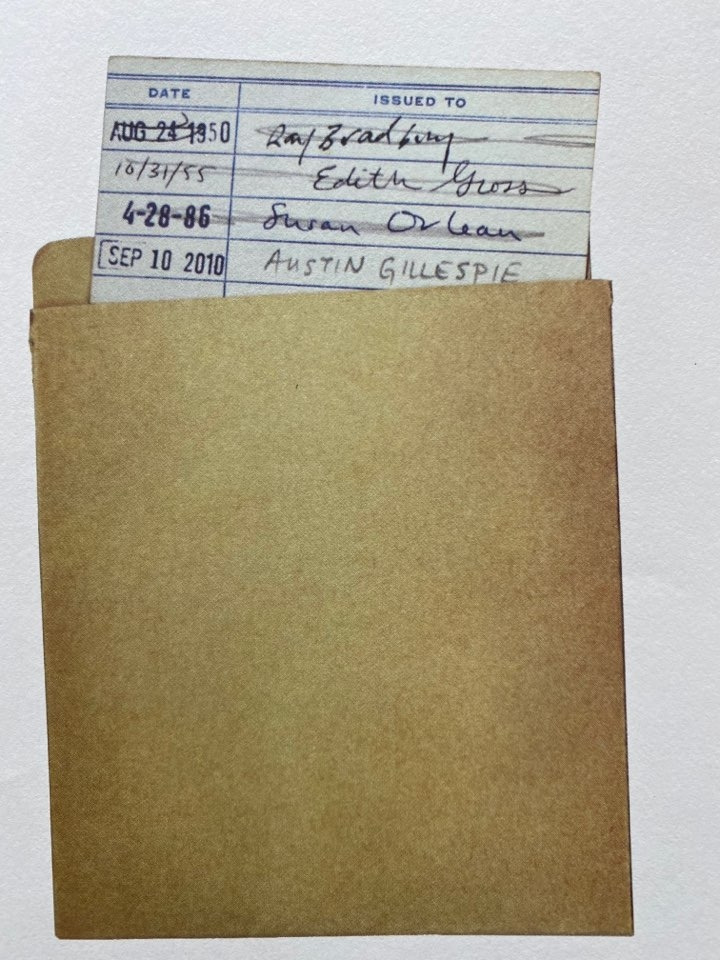 DATE ISSUED TO
AUG 23 1950 Ray Bradbury
10/31/55 Edith Gross
4-28-86 Susan Orlean
SEP 10 2010 AUSTIN GILLESPIE